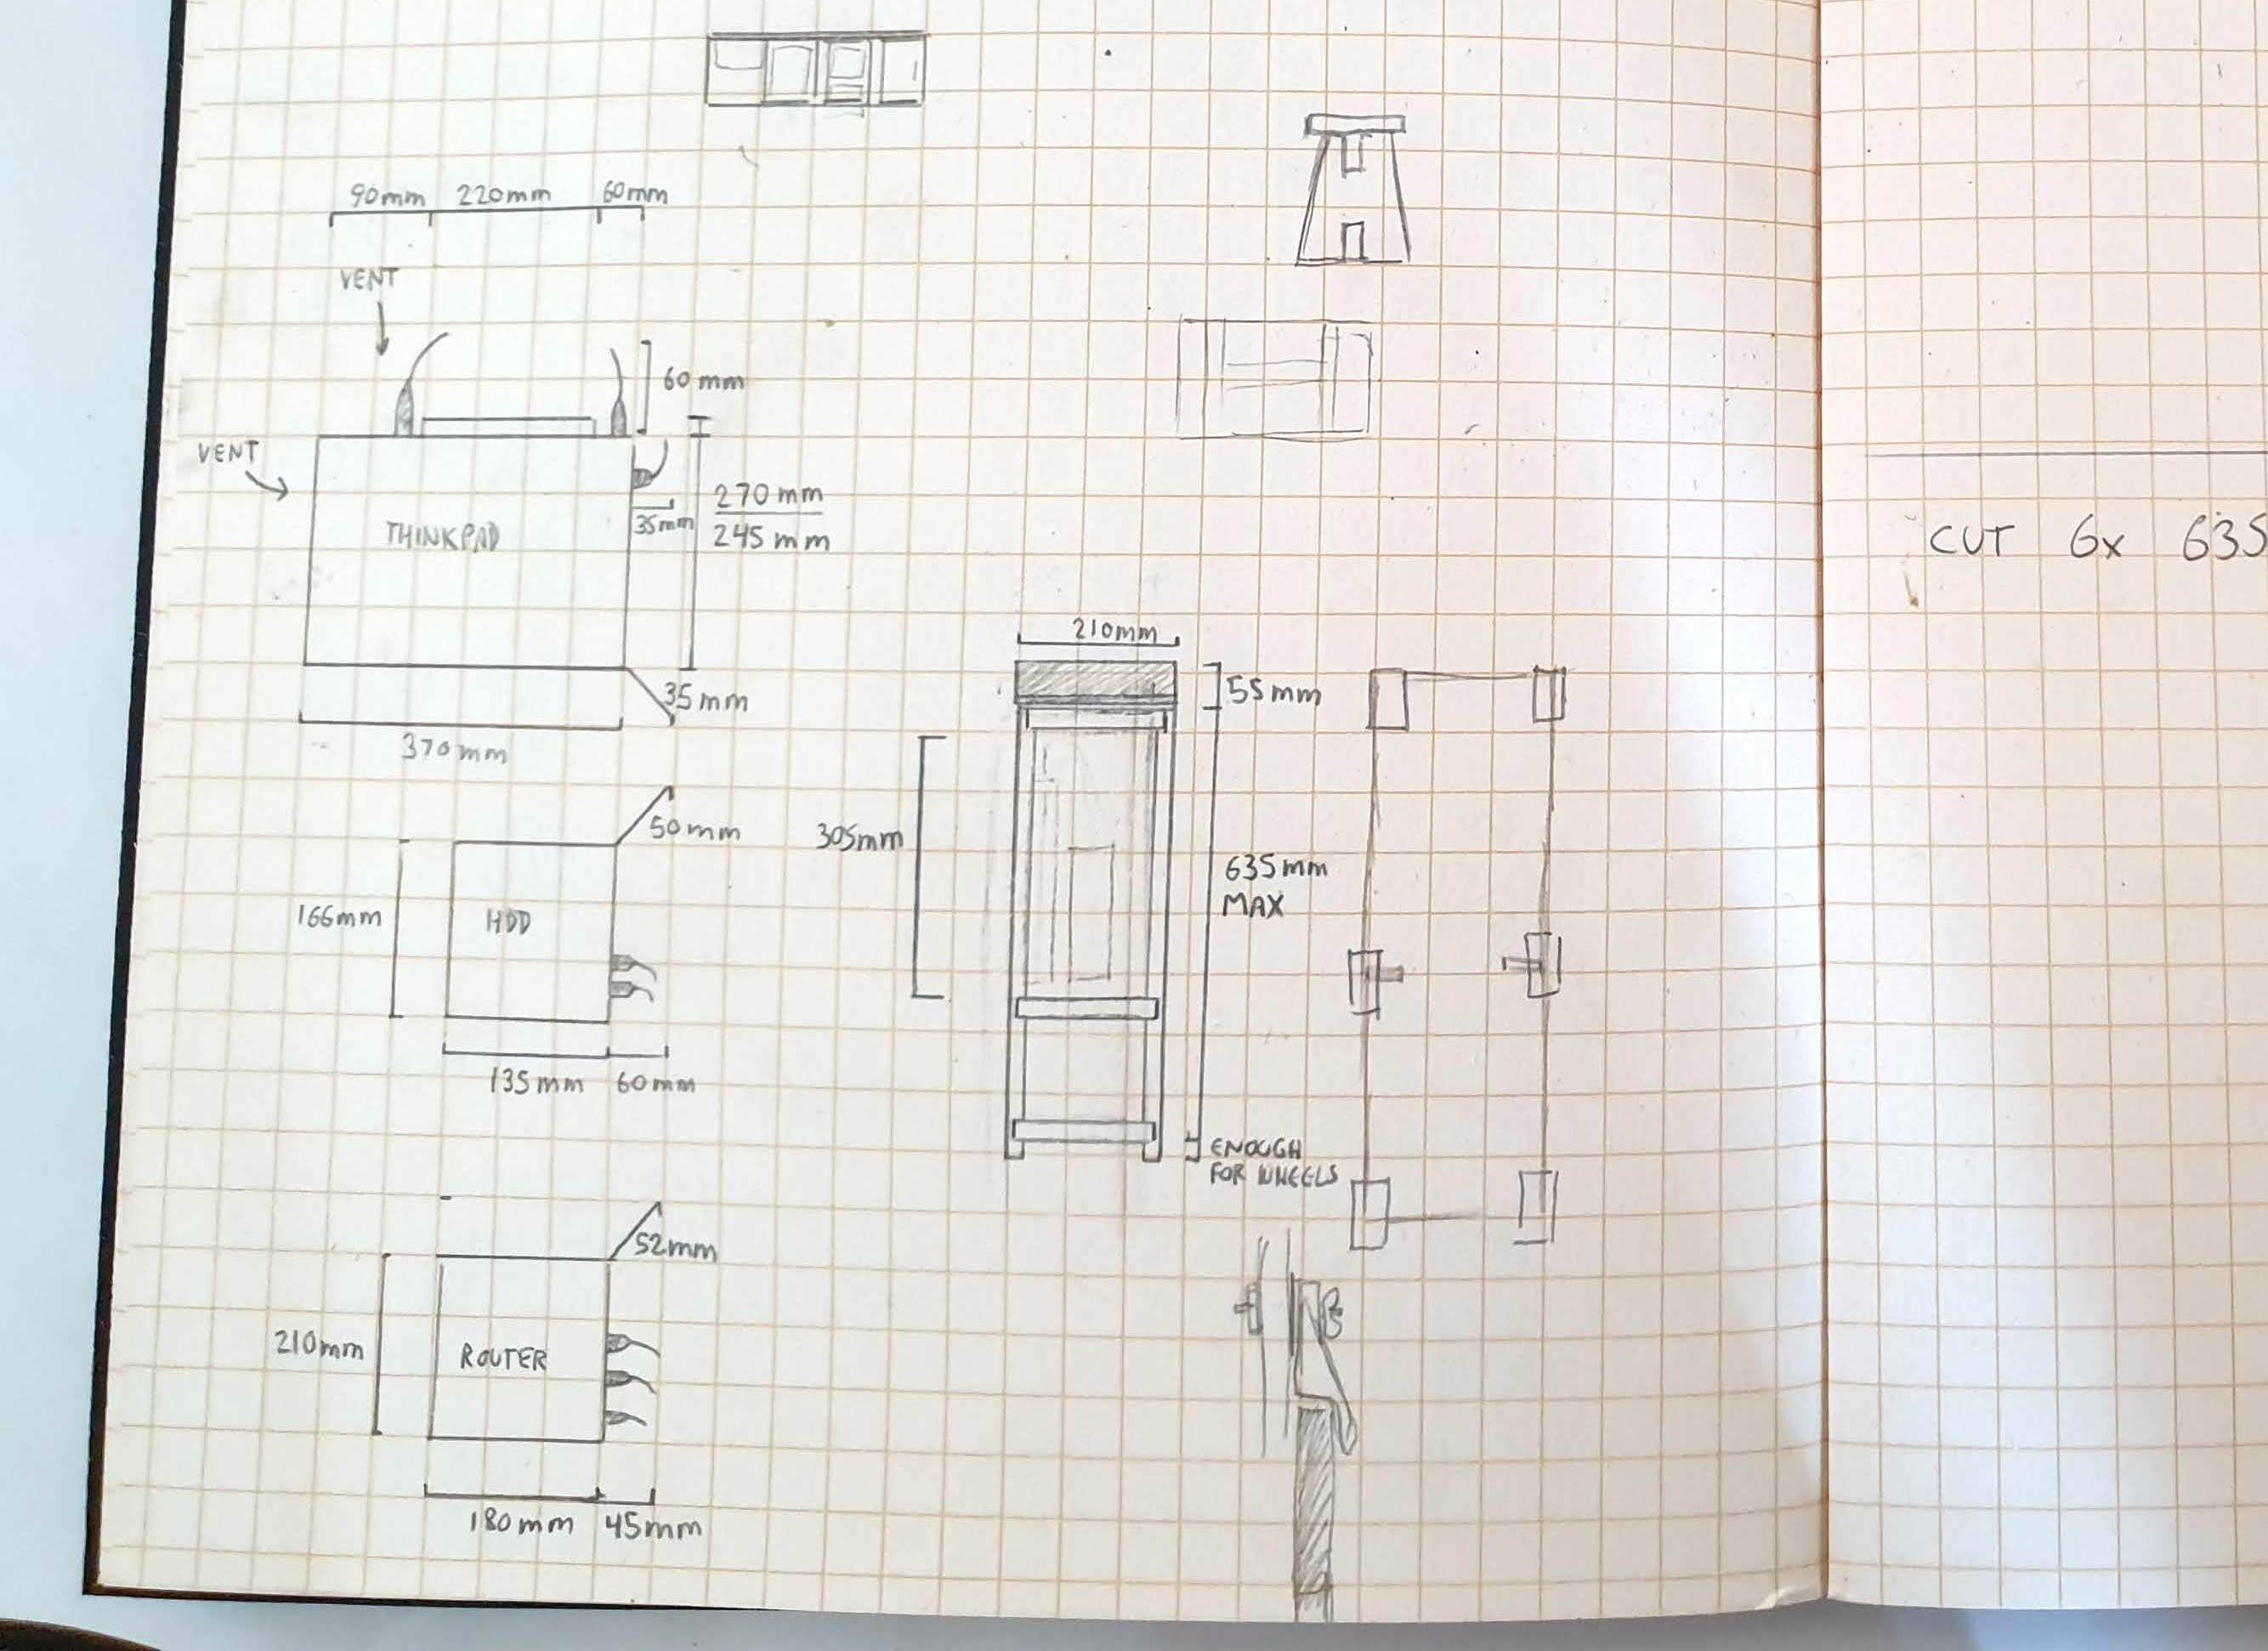 90mm 220mm 60mm
VENT
60mm
VENT
270mm
245mm
35mm
THINKPAD
35mm
370mm
50mm
166mm
HDD
135mm 60mm
52mm
210mm
ROUTER
180mm 45mm
210mm
55mm
305mm
635mm
MAX
ENOUGH
FOR WHEELS
CUT 6x 635